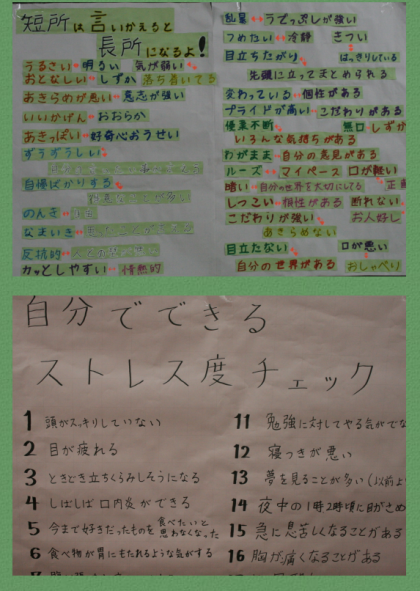 短所は言いかえると
長所になるよ!
うるさい 明るい 気が弱い
おとなしい しずか 落ち着いてる
あきらめが悪い 意志が強い
いいかげん おおらか
あきっぽい 好奇心おうせい
ずうずうしい
自慢ばかりする
のんき
なまいき
反抗的
カッとしやすい 情熱的
乱暴 うでっぷしが強い
つめたい 冷静 きつい
目立ちたがり はっきりしている
先頭に立ってまとめられる
変わっている 個性がある
プライドが高い こだわりがある
優柔不断 無口 しずか
いろんな気持ちがある
わがまま 自分の意見がある
ルーズ マイペース 口が軽い
暗い 自分の世界を大切にしてる 正直
しつこい 根性がある 断れない
こだわりが強い お人好し
あきらめない
目立たない 口が悪い
自分の世界がある おしゃべり
自分でできる
ストレス度チェック
1 頭がスッキリしていない
2 目が疲れる
3 ときどき立ちくらみしそうになる
4 しばしば口内炎ができる
5 今まで好きだったものを食べたいと思わなくなった
6 食べ物が胃にもたれるような気がする
11 勉強に対してやる気がでな
12 寝つきが悪い
13 夢を見ることが多い(以前よ
14 夜中の1時2時頃に目がさめ
15 急に息苦しくなることがある
16 胸が痛くなることがある